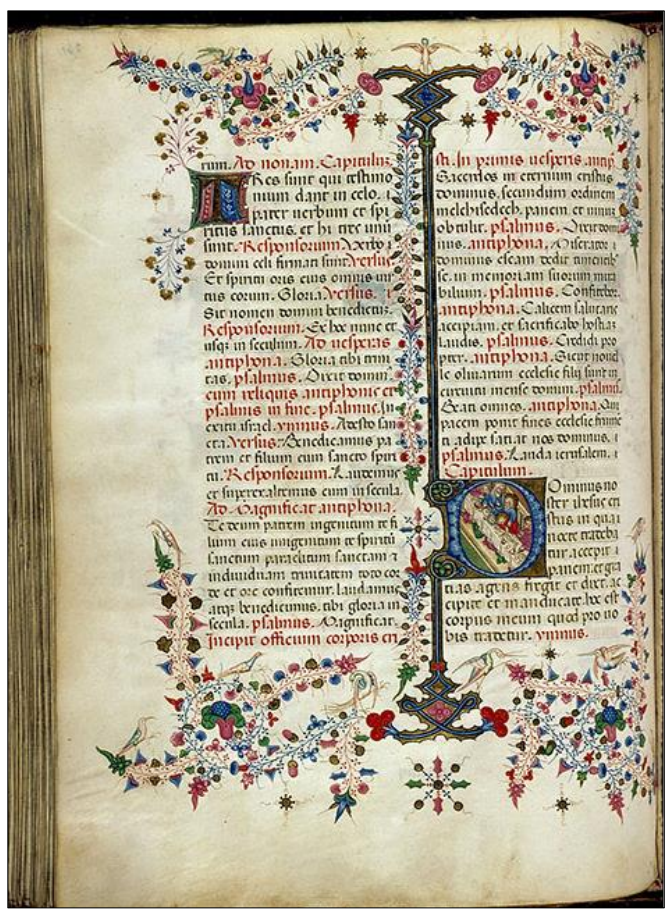 rum. Ad nonam. Capitulum.
Tres sunt qui testimo
nium dant in celo.
pater uerbum et spi
ritus sanctus. et hi tres unu
sunt. Responsorium. Verbo
domini celi firmati sunt. Versus.
Et spiritu oris eius omnis uir
tus eorum. Gloria. Versus.
Sit nomen domini benedictum.
Responsorium. Ex hoc nunc et
usqz in seculum. Ad uesperas
antiphona. Gloria tibi trini
tas. psalmus. Dixit dominus.
cum reliquis antiphonis et
psalmis in fine. psalmus. In
exitu israel. ymnus. Adesto san
cta. Versus. Benedicamus pa
trem et filium cum sancto spiri
tu. Responsorium. Laudemus
et superexaltemus eum in secula.
Ad Magnificat antiphona.
Te deum patrem ingenitum te fi
lium eius unigenitum te spiritu
sanctum paraclitum sanctam
indiuiduam trinitatem toto cor
de et ore confitemur. laudamus
atqz benedicimus. tibi gloria in
secula. psalmus. Magnificat.
Incipit officium corporis cri
sti. In primis uesperis. antiph.
Sacerdos in eternum cristus
dominus secundum ordinem
melchisedech. panem et uinum
obtulit. psalmus. Dixit domi
nus. antiphona. Miserator
dominus escam dedit timentib
se. in memoriam suorum mira
bilium. psalmus. Confitebor.
antiphona. Calicem salutaris
accipiam. et sacrificabo hostias
laudis. psalmus. Credidi pro
pter. antiphona. Sicut nouel
le oliuarum ecclesie filij sunt in
circuitu mense domini. psalmus.
Beati omnes. antiphona. Qui
pacem ponit fines ecclesie frume
ti adipe satiat nos dominus.
psalmus. Lauda ierusalem.
Capitulum.
Dominus no
ster ihesus cri
stus in qua
nocte tradeba
tur accepit
panem. et gra
tias agens fregit et dixit. ac
cipite et manducate. hoc est
corpus meum quod pro uo
bis tradetur. ymnus.